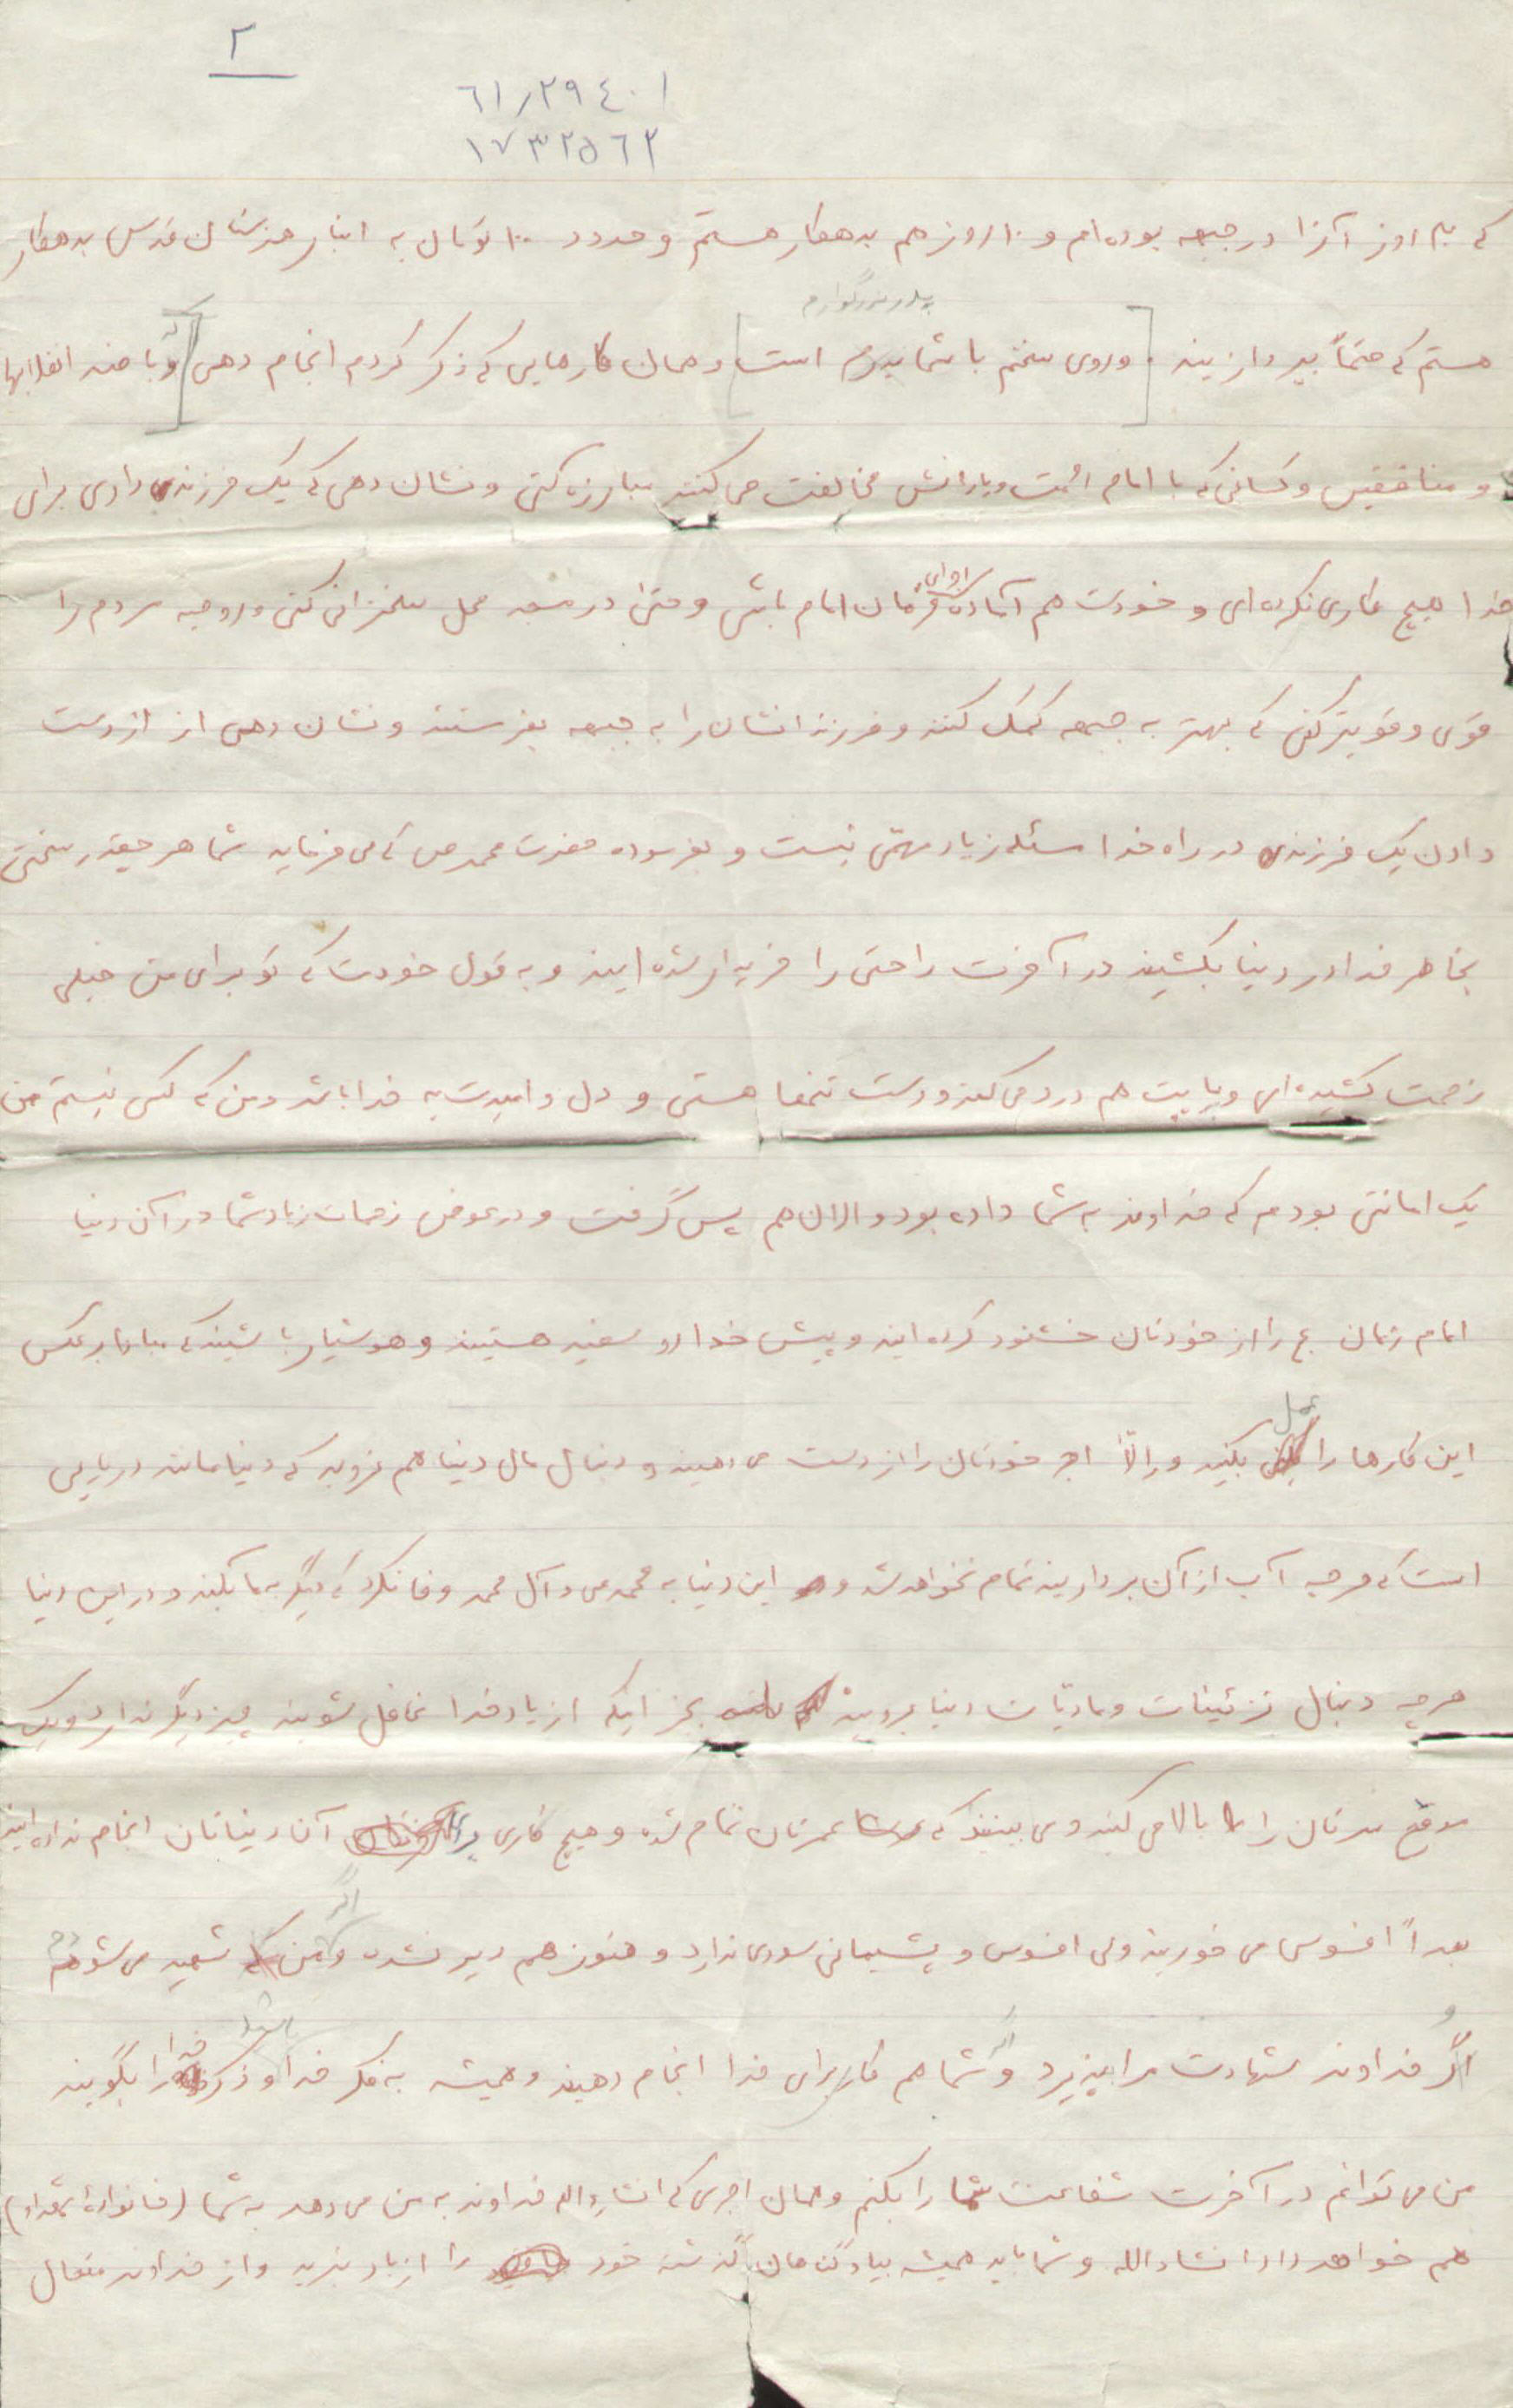 ۲
۶۱/۲۹۴۰۱
۱۷۳۲۵۶۲
که روز آنرا در جبهه بوده‌ام و ۱۰ روز هم بدهکار هستم و حدود ۱۰۰ تومان به انبار هنرستان قدس بدهکار
پدر بزرگوارم
هستم که حتماً بپردازیند . [وروی سخنم با شما پدرم است] و همان کارهایی که ذکر کردم انجام دهی [و با ضد انقلابها
و منافقین و کسانی که با امام امت و یارانش مخالفت می کنند مبارزه کنی و نشان دهی که یک فرزند دادی برای
خدا هیچ کاری نکرده‌ای و خودت هم آماده فرمان امام باشی و حتی در مسجد محل سخنرانی کنی و روحیه مردم را
قوی و قویتر کنی که بهتر به جبهه کمک کنند و فرزندانشان را به جبهه بفرستند و نشان دهی از از دست
دادن یک فرزند در راه خدا مسئله زیاد مهمّی نیست و بفرموده حضرت محمد ص که می فرماید شما هر چقدر سختی
بخاطر خدا در دنیا بکشیند در آخرت راحتی را خریدار شده ایند و به قول خودت که تو برای من خیلی
زحمت کشیده‌ای و پاییت هم درد می کند و دست تنها هستی و دل و امیدت به خدا باشد و من که کسی نیستم من
یک امانتی بودم که خداوند به شما داده بود و الان هم پس گرفت و در عوض زحمات زیاد شما در آن دنیا
امام زمان عج را از خودتان خشنود کرده ایند و پیش خدا رو سفید هستیند و هوشیار باشیند که مبادا برعکس
عمل
این کارها را بکنید و الّا اجر خودتان را از دست می دهیند و دنبال مال دنیا هم نروید که دنیا مانند دریایی
است که هر چه آب از آن برداریند تمام نخواهد شد و این دنیا به محمد ص و آل محمد وفا نکرد که دیگر به ما بکند و در این دنیا
هر چه دنبال تزئینات و مادیّات دنیا بروید بجز اینکه از یاد خدا غافل شویند چیز دیگر ندارد و یک
موقع سرتان را بالا می کنید و می بینید که عمرتان تمام شده و هیچ کاری برای آن دنیاتان انجام نداده ایند
اگر
بعداً افسوس می خوریند ولی افسوس و پشیمانی سودی ندارد و هنوز هم دیر نشده و من شهید می شوم
اگر خداوند شهادت مرا بپذیرد و شما هم کار برای خدا انجام دهیند و همیشه به فکر خدا و ذکر خدا را بگویند
من می توانم در آخرت شفاعت شما را بکنم و همان اجری که انشاءالله خداوند به من می دهد به شما (خانوادهٔ شهداء)
هم خواهد داد انشاءالله و شما باید همیشه بیاد گناهان گذشته خود را از یاد نبرید و از خداوند متعال